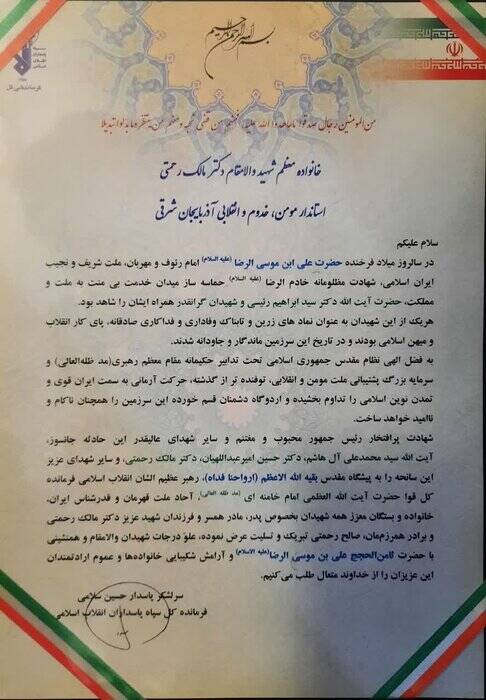 بسم الله الرحمن الرحیم
سپاه
پاسداران
انقلاب
اسلامی
فرماندهی کل
من المومنین رجال صدقوا ما عاهدوا الله علیه فمنهم من قضی نحبه و منهم من ینتظر و ما بدلوا تبدیلا
خانواده معظم شهید والامقام دکتر مالک رحمتی
استاندار مومن، خدوم و انقلابی آذربایجان شرقی
سلام علیکم
در سالروز میلاد فرخنده حضرت علی ابن موسی الرضا (علیه السلام) امام رئوف و مهربان، ملت شریف و نجیب
ایران اسلامی، شهادت مظلومانه خادم الرضا (علیه السلام) حماسه ساز میدان خدمت بی منت به ملت و
مملکت، حضرت آیت الله دکتر سید ابراهیم رئیسی و شهیدان گرانقدر همراه ایشان را شاهد بود.
هریک از این شهیدان به عنوان نماد های زرین و تابناک وفاداری و فداکاری صادقانه، پای کار انقلاب
و میهن اسلامی بودند و در تاریخ این سرزمین ماندگار و جاودانه شدند.
به فضل الهی نظام مقدس جمهوری اسلامی تحت تدابیر حکیمانه مقام معظم رهبری(مد ظله‌العالی) و
سرمایه بزرگ پشتیبانی ملت مومن و انقلابی، توفنده تر از گذشته، حرکت آرمانی به سمت ایران قوی و
تمدن نوین اسلامی را تداوم بخشیده و اردوگاه دشمنان قسم خورده این سرزمین را همچنان ناکام و
ناامید خواهد ساخت.
شهادت پرافتخار رئیس جمهور محبوب و مغتنم و سایر شهدای عالیقدر این حادثه جانسوز،
آیت الله سید محمدعلی آل هاشم، دکتر حسین امیرعبداللهیان، دکتر مالک رحمتی، و سایر شهدای عزیز
این سانحه را به پیشگاه مقدس بقیه الله الاعظم (ارواحنا فداه)، رهبر عظیم الشان انقلاب اسلامی فرمانده
کل قوا حضرت آیت الله العظمی امام خامنه ای (مد ظله العالی)، آحاد ملت قهرمان و قدرشناس ایران،
خانواده و بستگان معزز همه شهیدان بخصوص پدر، مادر همسر و فرزندان شهید عزیز دکتر مالک رحمتی
و برادر همرزمان، صالح رحمتی تبریک و تسلیت عرض نموده، علو درجات شهیدان والامقام و همنشینی
با حضرت ثامن‌الحجج علی بن موسی الرضا(علیه السلام) و آرامش شکیبایی خانواده‌ها و عموم ارادتمندان
این عزیزان را از خداوند متعال طلب می‌کنیم.
سرلشکر پاسدار حسین سلامی
فرمانده کل سپاه پاسداران انقلاب اسلامی